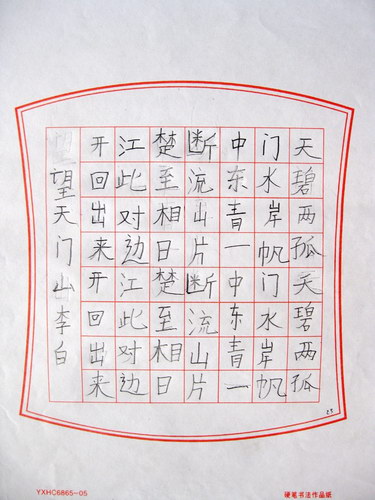 天门中断楚江开
碧水东流至此回
两岸青山相对出
孤帆一片日边来
天门中断楚江开
碧水东流至此回
两岸青山相对出
孤帆一片日边来
望天门山李白
YXHC6865-05
硬笔书法作品纸